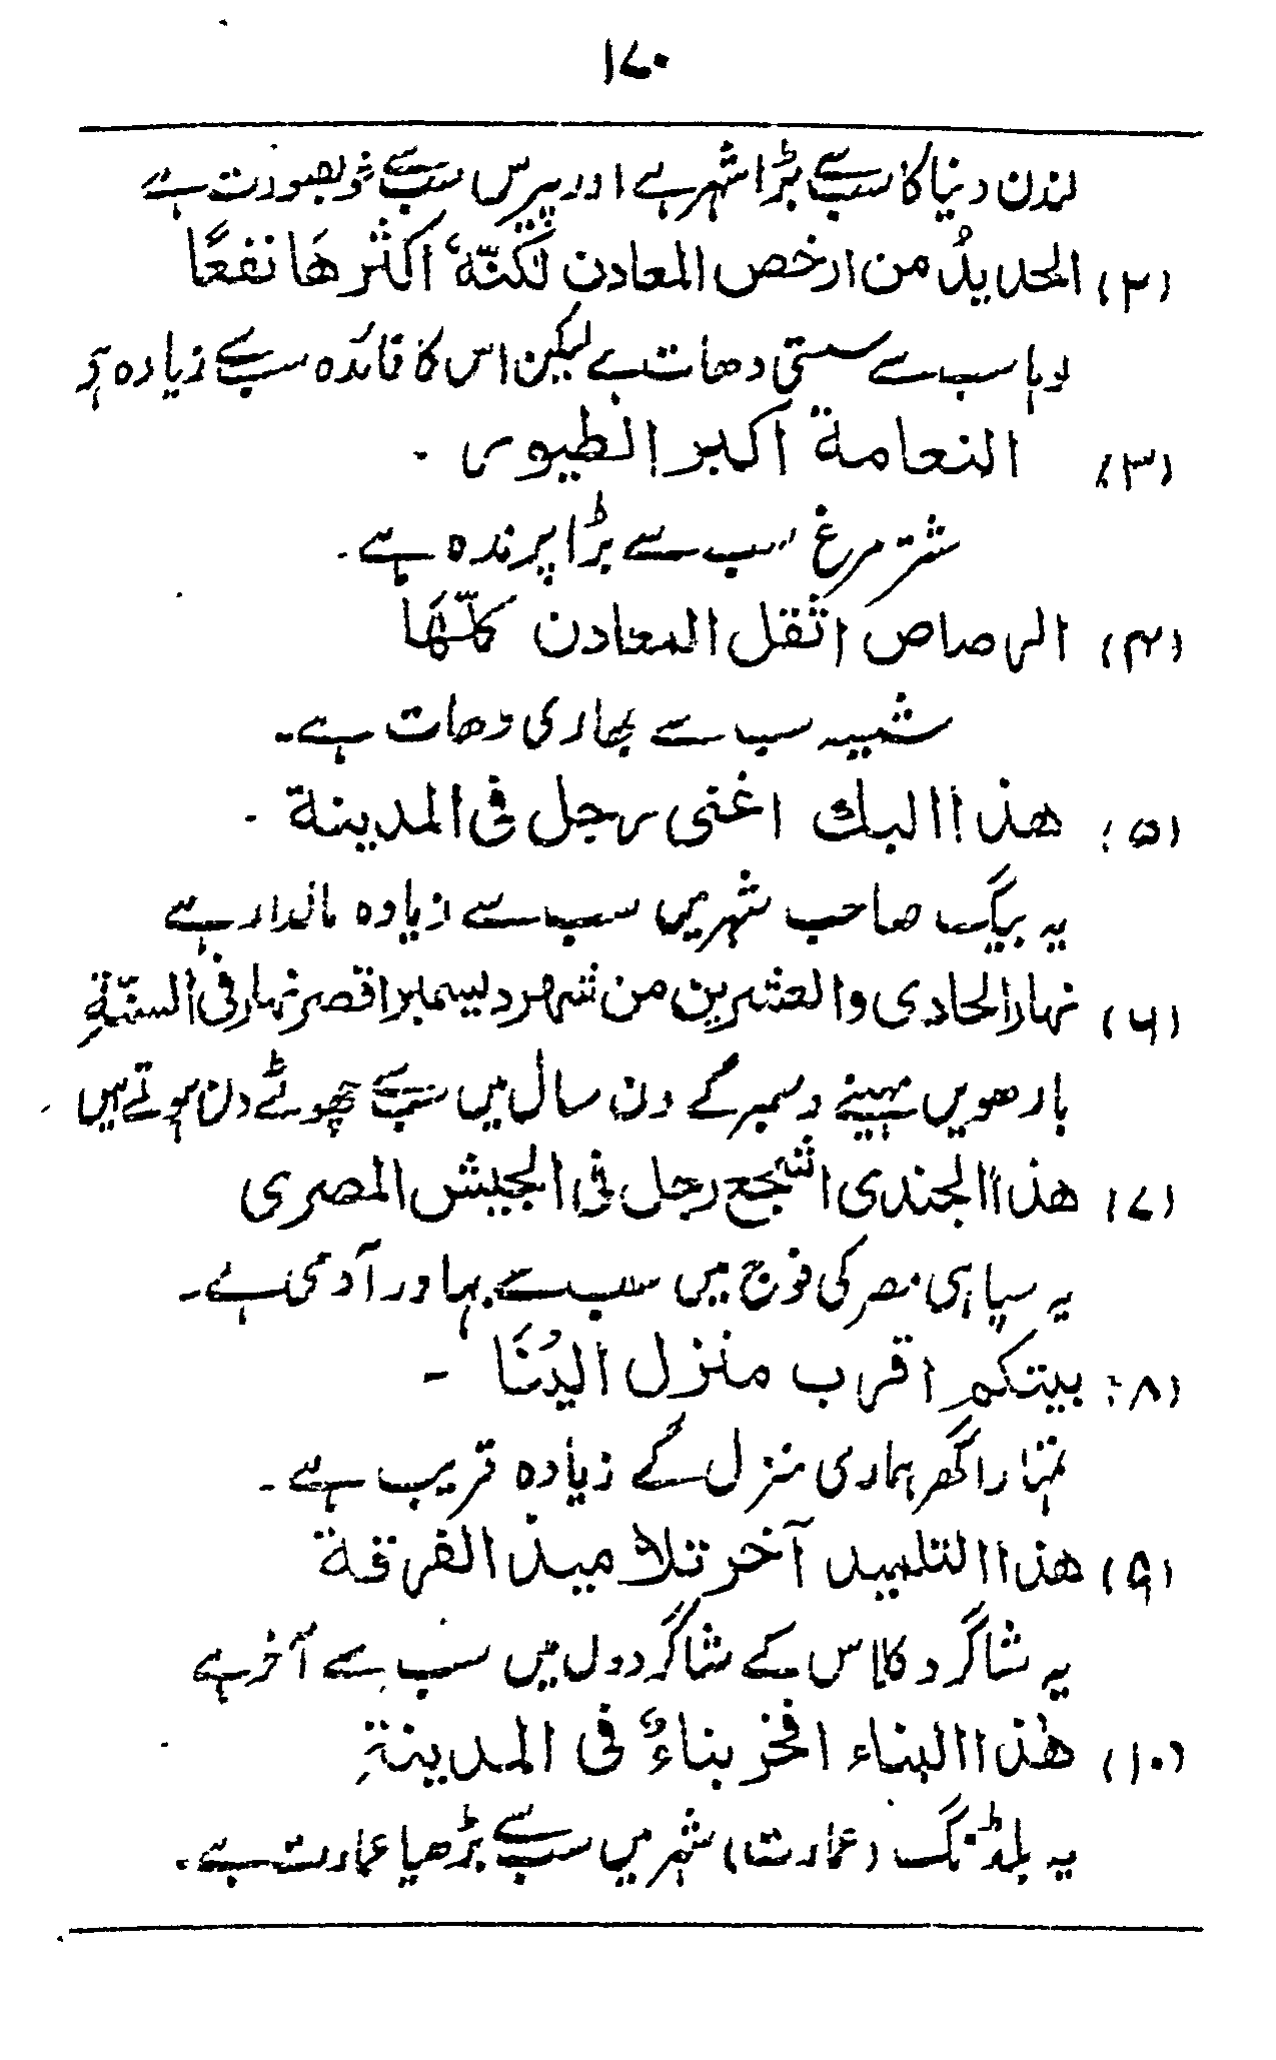 ۱۷۰
لندن دنیا کا سب سے بڑا شہر ہے اور پیرس سب سے خوبصورت ہے
(۲) الحدیدُ من ارخص المعادن لٰکنّہٗ اکثرھَا نفعًا
لوہا سب سے سستی دھات ہے لیکن اس کا فائدہ سب سے زیادہ ہے
(۳) النعامة اکبر الطیور ۔
شتر مرغ سب سے بڑا پرندہ ہے ۔
(۴) الرصاص اثقل المعادن کلّھَا
شیسہ سب سے بھاری دھات ہے ۔
(۵) ھذا البك اغنی رجل فی المدینة ۔
یہ بیگ صاحب شہر میں سب سے زیادہ مالدار ہے
(۶) نہار الحادی والعشرین من شھر دیسمبر اقصر نہار فی السنّةِ
بارھویں مہینے دسمبر کے دن سال میں سب سے چھوٹے دن ہوتے ہیں
(۷) ھذا الجندی اشجع رجل فی الجیش المصری
یہ سپاہی مصر کی فوج میں سب سے بہادر آدمی ہے ۔
(۸) بیتکم اقرب منزل الیُنَا ۔
تمہارا گھر ہماری منزل کے زیادہ قریب ہے ۔
(۹) ھذا التلمیذ آخر تلامیذ الفرقة
یہ شاگرد کلاس کے شاگردوں میں سب سے آخر ہے
(۱۰) ھٰذا البناء افخر بناءٌ فی المدینةِ
یہ بلڈنگ (عمارت) شہر میں سب سے بڑھیا عمارت ہے ۔